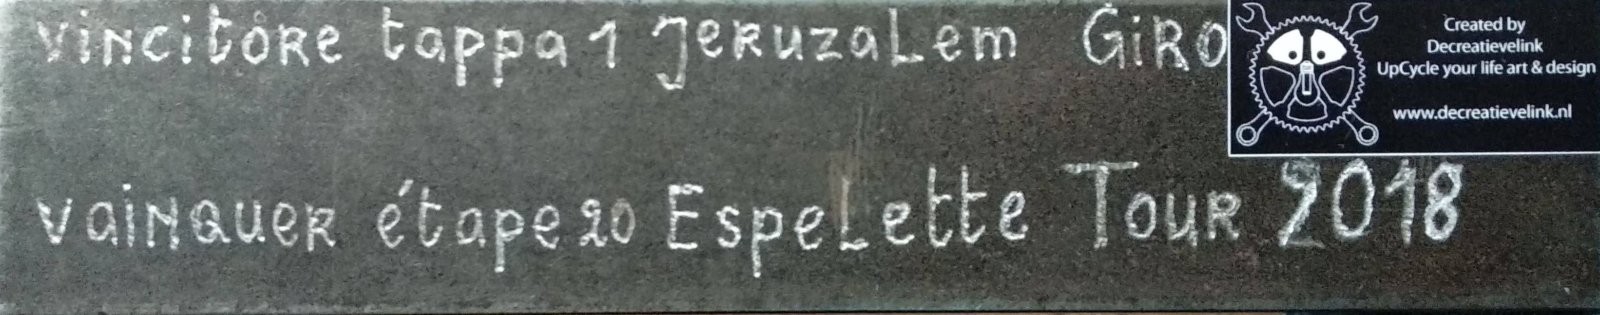 vincitore tappa 1 Jeruzalem GiRO
Created by
Decreatievelink
UpCycle your life art & design
www.decreatievelink.nl
vainquer étape 20 Espelette Tour 2018